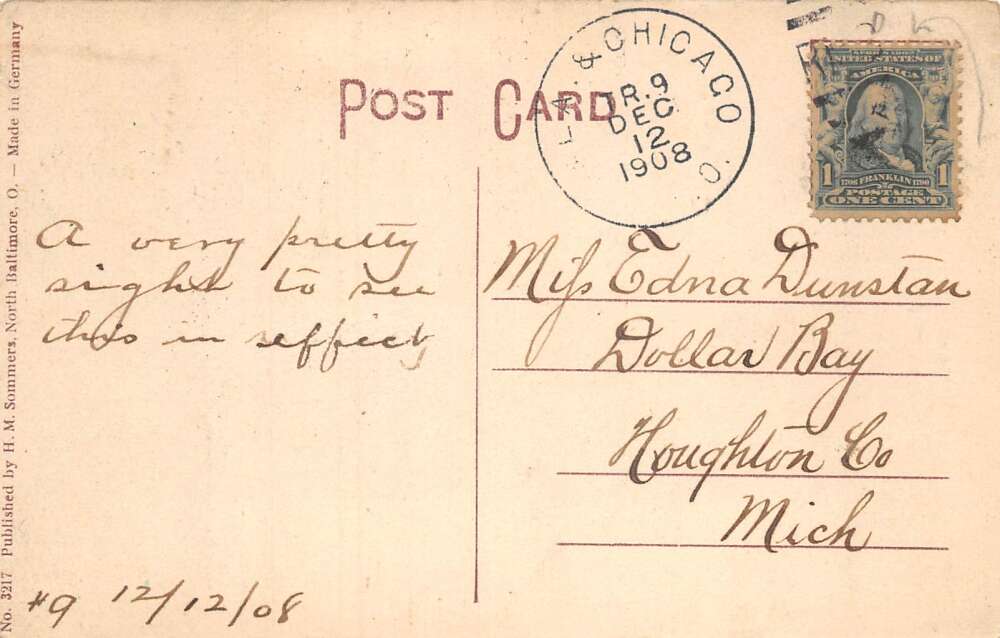 POST CARD
& CHICAGO
TR. 9
DEC
12
1908
R. P. O.
UNITED STATES OF
AMERICA
1 1706 FRANKLIN 1790 1
POSTAGE
ONE CENT
A very pretty
sight to see
this in effect,
#9 12/12/08
Miss Edna Dunstan
Dollar Bay
Houghton Co
Mich
No. 3217 Published by H. M. Sommers, North Baltimore, O. — Made in Germany